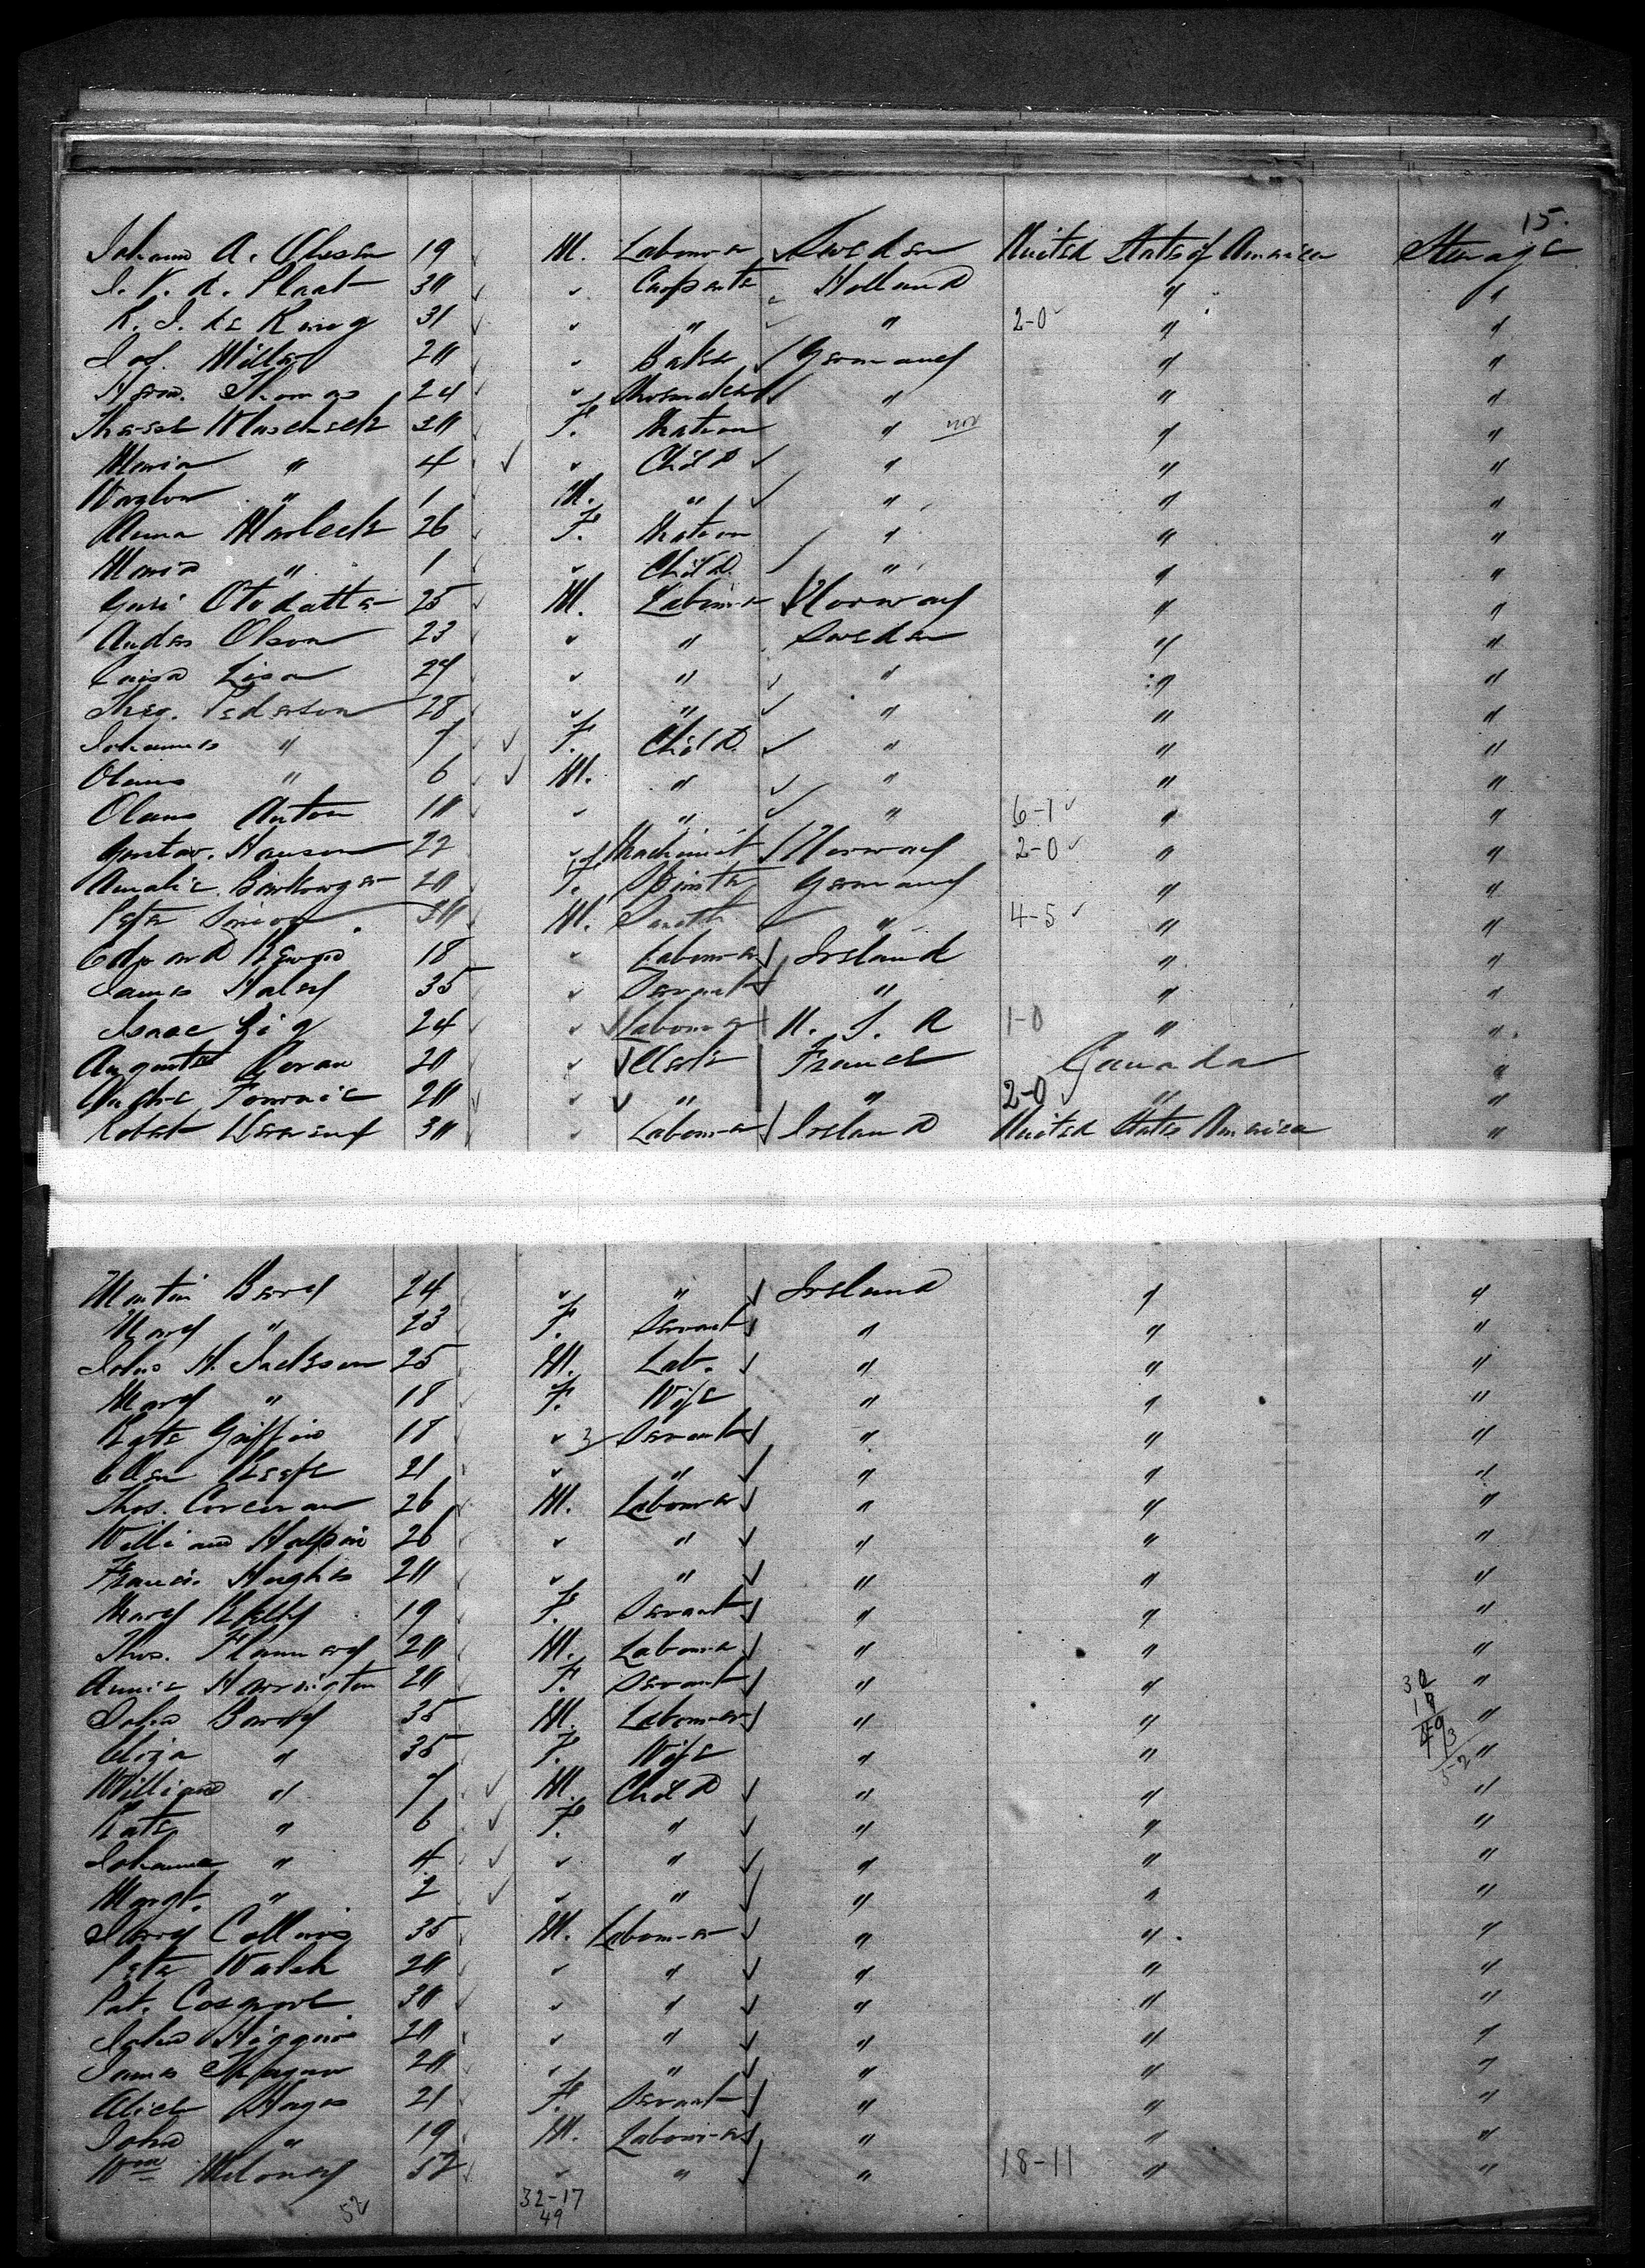 15.
Johann A. Olessen 19 M. Labourer Sweden United States of America Steerage
J. V. d. Plaat 30 " Carpenter Holland " "
K. J. de Kring 31 " " " 2-0 " "
Jos. Miller 20 " Baker Germany " "
Herm. Thomas 24 " Shoemaker " " "
Therese Maschek 30 F. Matron " " "
Maria " 4 " Child " " "
1 M. " " " "
Anna Marleck 26 F. Matron " " "
Maria " 1 " Child " " "
25 M. Labourer Norway " "
Anders Olson 23 " " Sweden " "
Caisa Lisa 24 " " " " "
Theo. Pederson 28 " " " " "
Johannes " 7 F. Child " " "
Olaus " 6 M. " " " "
Olaus Anton 10 " " " 6-1 " "
Gustav. Hansen 22 " Machinist Norway 2-0 " "
Amalie 20 F. Spinster Germany " "
Peter 30 M. Smith " 4-5 " "
Edward Keough 18 " Labourer Ireland " "
James Haley 35 " Servant " " "
Isaac Gig 24 " Labourer U. S. A 1-0 " "
20 " Clerk France Canada "
20 " " " 2-0 " "
Robert 30 " Labourer Ireland United States America "
Martin Berry 24 " " Ireland " "
Mary " 23 F. Servant " " "
John H. Jackson 25 M. Lab. " " "
Mary " 18 F. Wife " " "
Kate Griffin 18 " 3 Servant " " "
Ellen Keefe 21 " " " " "
Thos. Corcoran 26 M. Labourer " " "
William Halpin 26 " " " " "
Francis Hughes 20 " " " " "
Mary Kelly 19 F. Servant " " "
Thos. Flannery 20 M. Labourer " " "
Annie Harrington 20 F. Servant " " "
John Barry 35 M. Labourer " " "
Eliza " 35 F. Wife " " "
William " 7 M. Child " " "
Kate " 6 F. " " " "
Johanna " 4 " " " " "
Margt. " 2 " " " " "
Jerry Collins 35 M. Labourer " " "
Peter Walsh 20 " " " " "
Pat. Cosgrove 30 " " " " "
John Higgins 20 " " " " "
James 20 " " " " "
Alice Hayes 21 F. Servant " " "
John " 19 M. Labourer " " "
Wm Meloney 52 " " " 18-11 " "
52 32-17
49